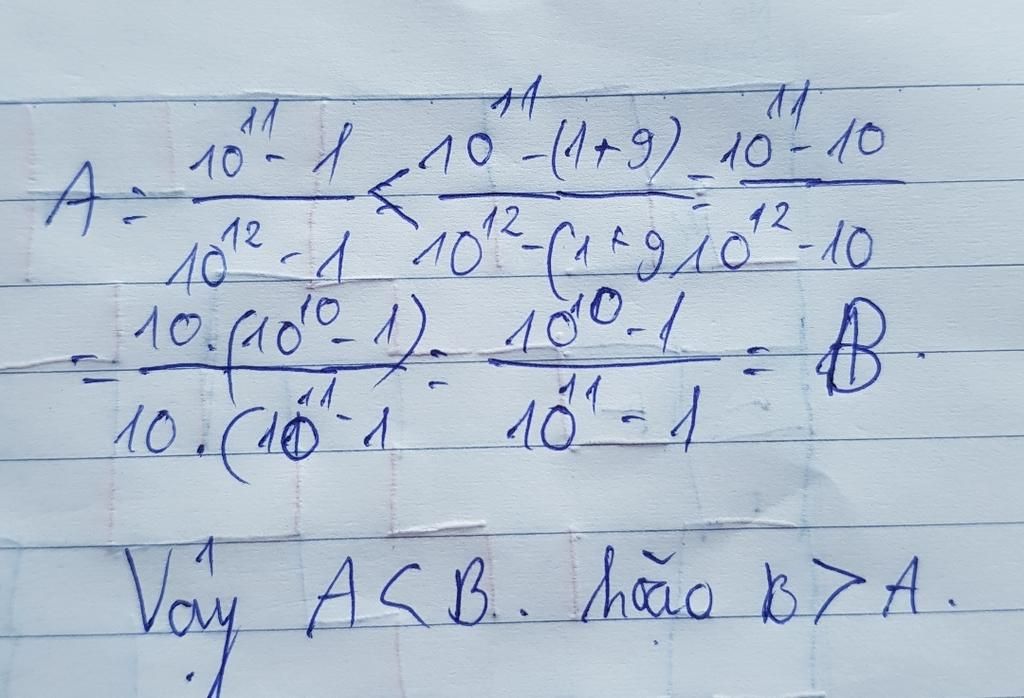 A = \frac{10^{11} - 1}{10^{12} - 1} < \frac{10^{11} - (1+9)}{10^{12} - (1+9} = \frac{10^{11} - 10}{10^{12} - 10}
= \frac{10.(10^{10} - 1)}{10.(10^{11} - 1} = \frac{10^{10} - 1}{10^{11} - 1} = B.
Vậy A < B. B > A.